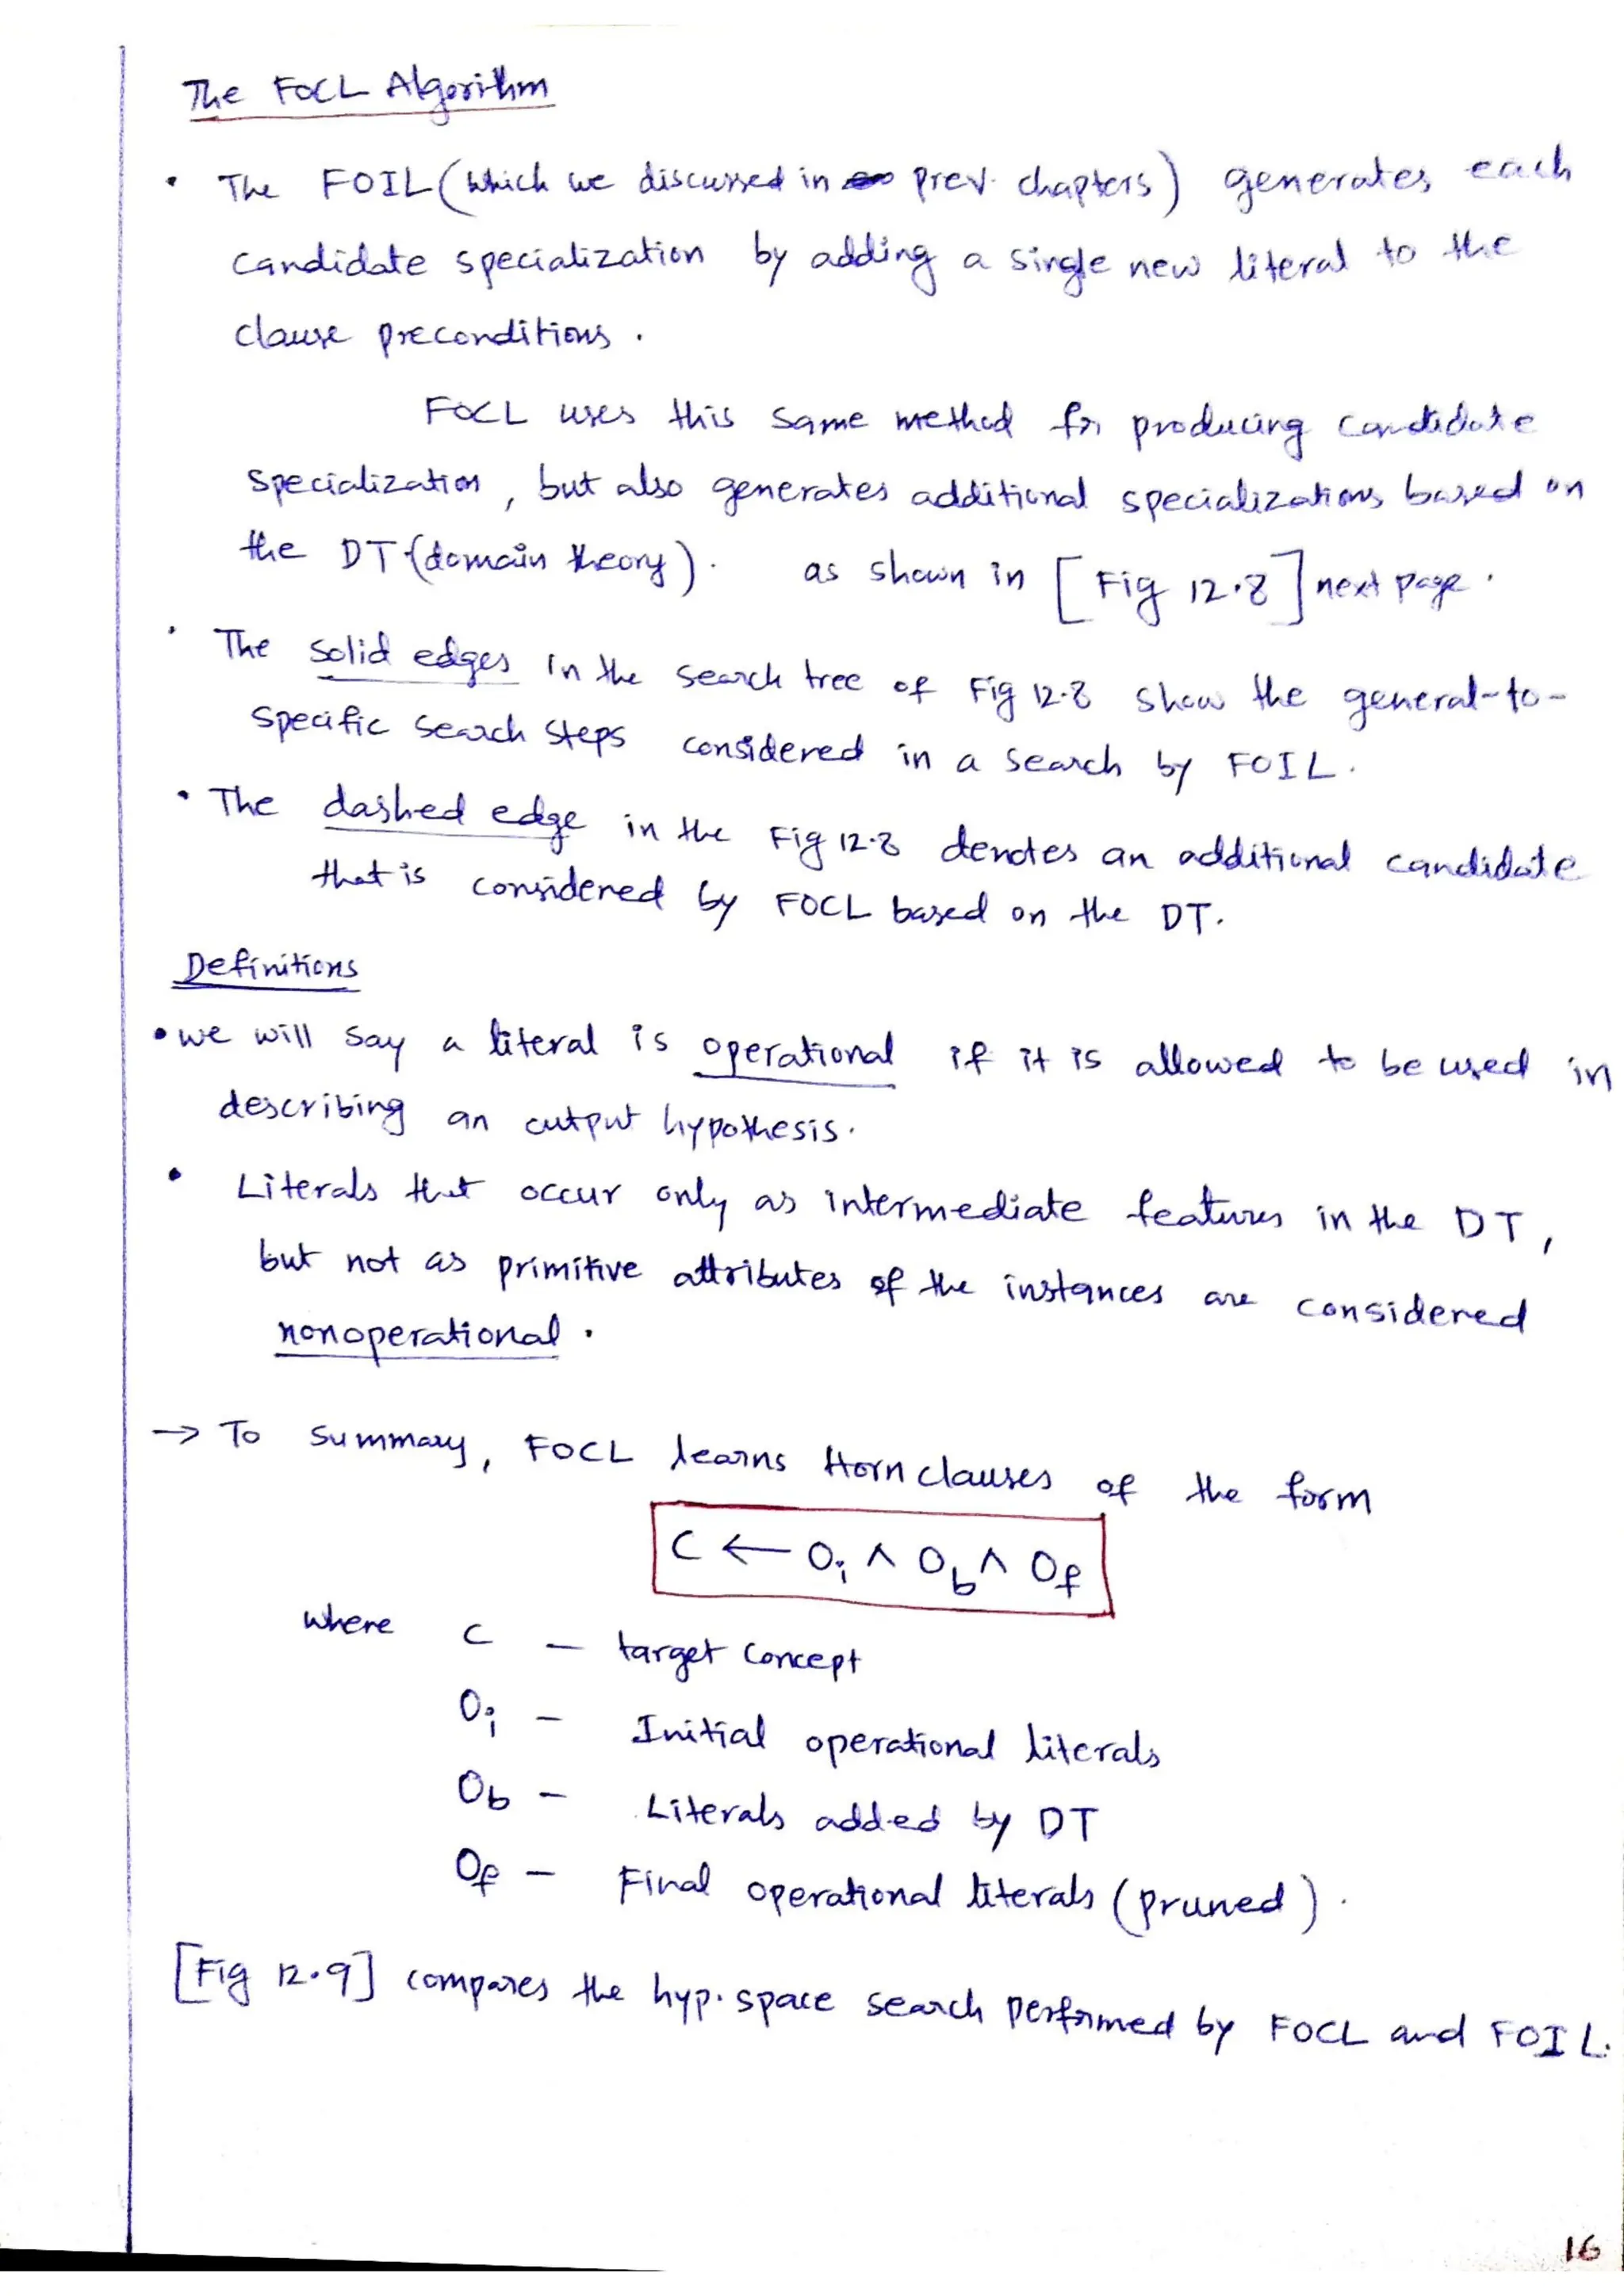 The FOCL Algorithm
• The FOIL (which we discussed in prev. chapters) generates each
candidate specialization by adding a single new literal to the
clause preconditions.
FOCL uses this same method for producing candidate
specialization, but also generates additional specializations based on
the DT (domain theory). as shown in [Fig 12.8] next page.
• The solid edges in the search tree of Fig 12.8 show the general-to-
specific search steps considered in a search by FOIL.
• The dashed edge in the Fig 12.8 denotes an additional candidate
that is considered by FOCL based on the DT.
Definitions
• we will say a literal is operational if it is allowed to be used in
describing an output hypothesis.
• Literals that occur only as intermediate features in the DT,
but not as primitive attributes of the instances are considered
nonoperational.
→ To summary, FOCL learns Horn clauses of the form
C ← Oi ∧ Ob ∧ Of
where C – target concept
Oi – Initial operational literals
Ob – Literals added by DT
Of – Final operational literals (pruned).
[Fig 12.9] compares the hyp. space search performed by FOCL and FOIL.
16